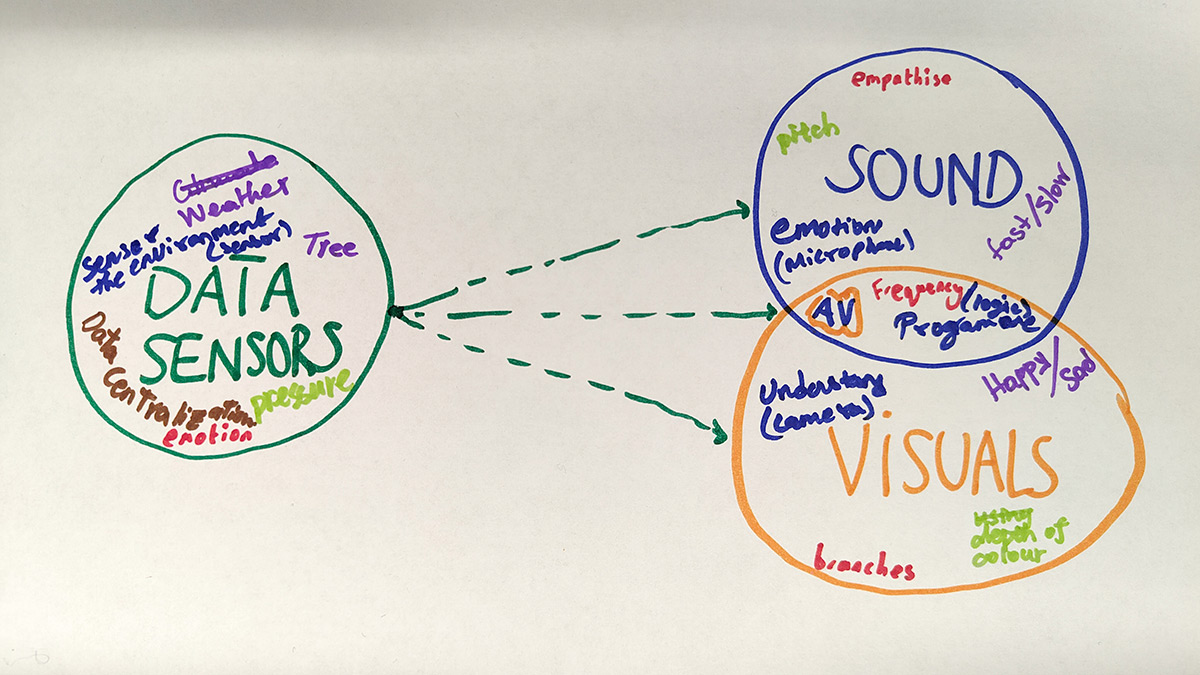 Weather
Senser
the environment
(sensor)
Tree
DATA
SENSORS
Data
Centralization
pressure
emotion
empathise
pitch
SOUND
fast/slow
emotion
(Microphone)
AV
Frequency
(logic)
Programare
Understang
(camera)
Happy/Sad
VISUALS
using
depth of
colour
branches